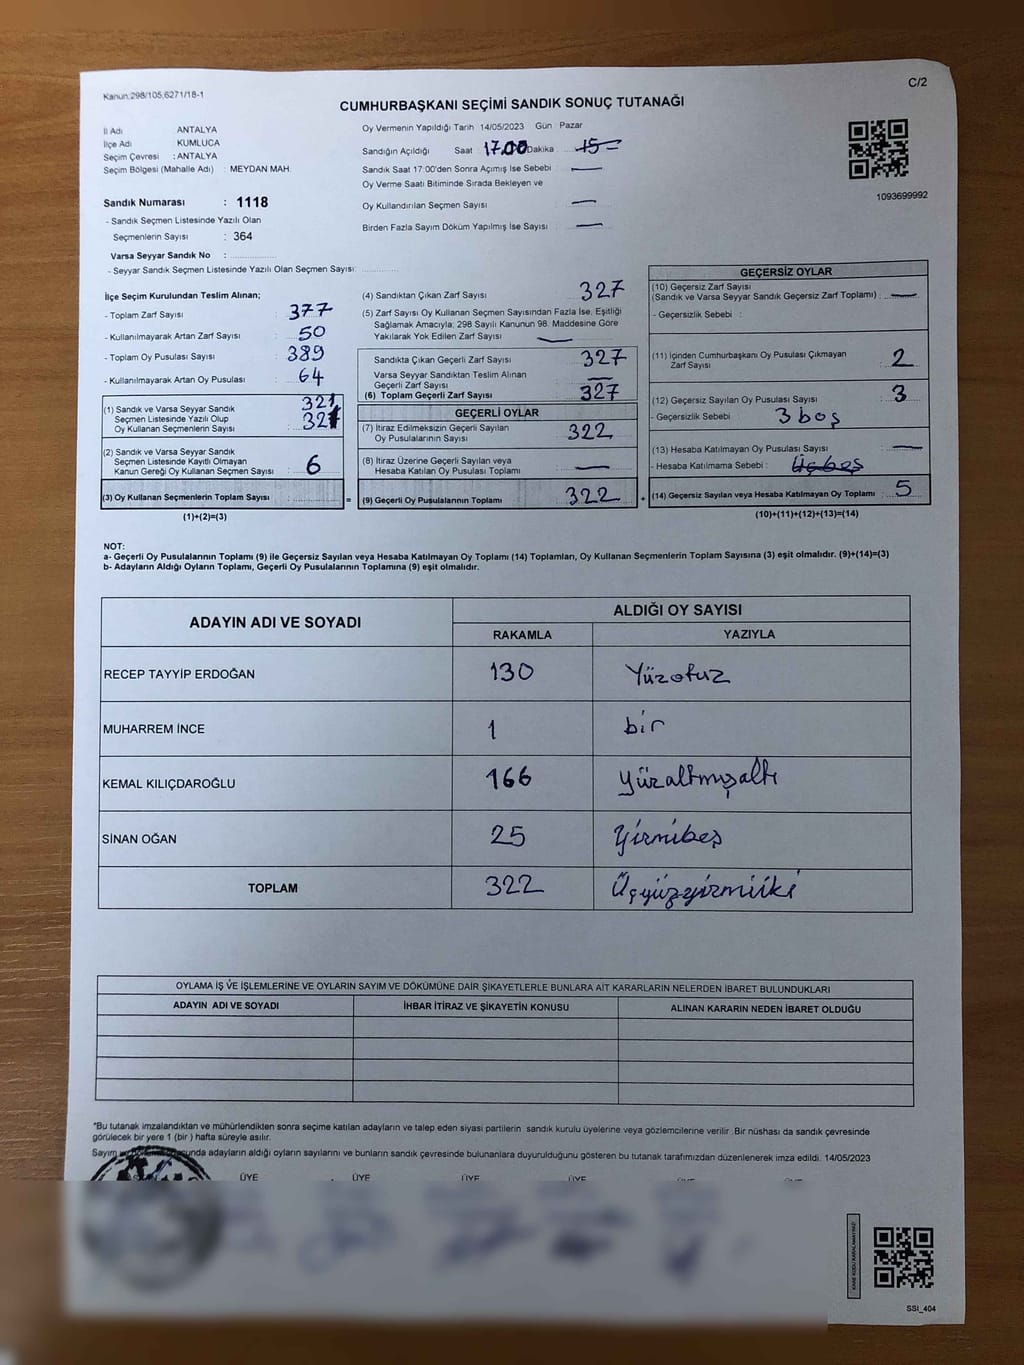 Kanun:298/105,6271/18-1
C/2
CUMHURBAŞKANI SEÇİMİ SANDIK SONUÇ TUTANAĞI
İl Adı ANTALYA
İlçe Adı KUMLUCA
Seçim Çevresi : ANTALYA
Seçim Bölgesi (Mahalle Adı) : MEYDAN MAH.
Sandık Numarası : 1118
- Sandık Seçmen Listesinde Yazılı Olan
Seçmenlerin Sayısı : 364
Varsa Seyyar Sandık No :
- Seyyar Sandık Seçmen Listesinde Yazılı Olan Seçmen Sayısı:
Oy Vermenin Yapıldığı Tarih 14/05/2023 Gün : Pazar
Sandığın Açıldığı Saat 17.00 Dakika : 15
Sandık Saat 17:00'den Sonra Açımış İse Sebebi : —
Oy Verme Saati Bitiminde Sırada Bekleyen ve
Oy Kullandırılan Seçmen Sayısı : —
Birden Fazla Sayım Döküm Yapılmış İse Sayısı : —
1093699992
İlçe Seçim Kurulundan Teslim Alınan;
- Toplam Zarf Sayısı : 377
- Kullanılmayarak Artan Zarf Sayısı : 50
- Toplam Oy Pusulası Sayısı : 389
- Kullanılmayarak Artan Oy Pusulası : 64
(1) Sandık ve Varsa Seyyar Sandık 321
Seçmen Listesinde Yazılı Olup
Oy Kullanan Seçmenlerin Sayısı
(2) Sandık ve Varsa Seyyar Sandık
Seçmen Listesinde Kayıtlı Olmayan
Kanun Gereği Oy Kullanan Seçmen Sayısı : 6
(3) Oy Kullanan Seçmenlerin Toplam Sayısı : =
(1)+(2)=(3)
(4) Sandıktan Çıkan Zarf Sayısı : 327
(5) Zarf Sayısı Oy Kullanan Seçmen Sayısından Fazla İse, Eşitliği
Sağlamak Amacıyla; 298 Sayılı Kanunun 98. Maddesine Göre
Yakılarak Yok Edilen Zarf Sayısı : —
Sandıkta Çıkan Geçerli Zarf Sayısı : 327
Varsa Seyyar Sandıktan Teslim Alınan
Geçerli Zarf Sayısı : —
(6) Toplam Geçerli Zarf Sayısı : 327
GEÇERLİ OYLAR
(7) İtiraz Edilmeksizin Geçerli Sayılan
Oy Pusulalarının Sayısı : 322
(8) İtiraz Üzerine Geçerli Sayılan veya
Hesaba Katılan Oy Pusulası Toplamı : —
(9) Geçerli Oy Pusulalarının Toplamı : 322 +
GEÇERSİZ OYLAR
(10) Geçersiz Zarf Sayısı
(Sandık ve Varsa Seyyar Sandık Geçersiz Zarf Toplamı) : —
- Geçersizlik Sebebi :
(11) İçinden Cumhurbaşkanı Oy Pusulası Çıkmayan
Zarf Sayısı : 2
(12) Geçersiz Sayılan Oy Pusulası Sayısı : 3
- Geçersizlik Sebebi : 3 boş
(13) Hesaba Katılmayan Oy Pusulası Sayısı : —
- Hesaba Katılmama Sebebi : Üçboş
(14) Geçersiz Sayılan veya Hesaba Katılmayan Oy Toplamı : 5
(10)+(11)+(12)+(13)=(14)
NOT:
a- Geçerli Oy Pusulalarının Toplamı (9) ile Geçersiz Sayılan veya Hesaba Katılmayan Oy Toplamı (14) Toplamları, Oy Kullanan Seçmenlerin Toplam Sayısına (3) eşit olmalıdır. (9)+(14)=(3)
b- Adayların Aldığı Oyların Toplamı, Geçerli Oy Pusulalarının Toplamına (9) eşit olmalıdır.
ADAYIN ADI VE SOYADI ALDIĞI OY SAYISI
RAKAMLA YAZIYLA
RECEP TAYYİP ERDOĞAN 130 Yüzotuz
MUHARREM İNCE 1 bir
KEMAL KILIÇDAROĞLU 166 yüzaltmışaltı
SİNAN OĞAN 25 Yirmibeş
TOPLAM 322 Üçyüzyirmiiki
OYLAMA İŞ VE İŞLEMLERİNE VE OYLARIN SAYIM VE DÖKÜMÜNE DAİR ŞİKAYETLERLE BUNLARA AİT KARARLARIN NELERDEN İBARET BULUNDUKLARI
ADAYIN ADI VE SOYADI İHBAR İTİRAZ VE ŞİKAYETİN KONUSU ALINAN KARARIN NEDEN İBARET OLDUĞU
*Bu tutanak imzalandıktan ve mühürlendikten sonra seçime katılan adayların ve talep eden siyasi partilerin sandık kurulu üyelerine veya gözlemcilerine verilir. Bir nüshası da sandık çevresinde
görülecek bir yere 1 (bir ) hafta süreyle asılır.
Sayım adayların aldığı oyların sayılarını ve bunların sandık çevresinde bulunanlara duyurulduğunu gösteren bu tutanak tarafımızdan düzenlenerek imza edildi. 14/05/2023
ÜYE ÜYE ÜYE ÜYE ÜYE ÜYE
KARE KODU KARALAMAYINIZ!
SSI_404